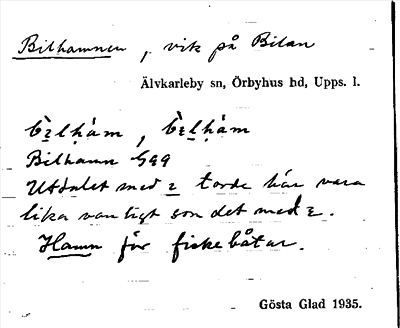 Bilhamnen, vik på Bilan
Älvkarleby sn, Örbyhus hd, Upps. l.
Bilhamn G99
Uttalet med ɛ torde här vara
lika vanligt som det med ɛ.
Hamn för fiskebåtar.
Gösta Glad 1935.